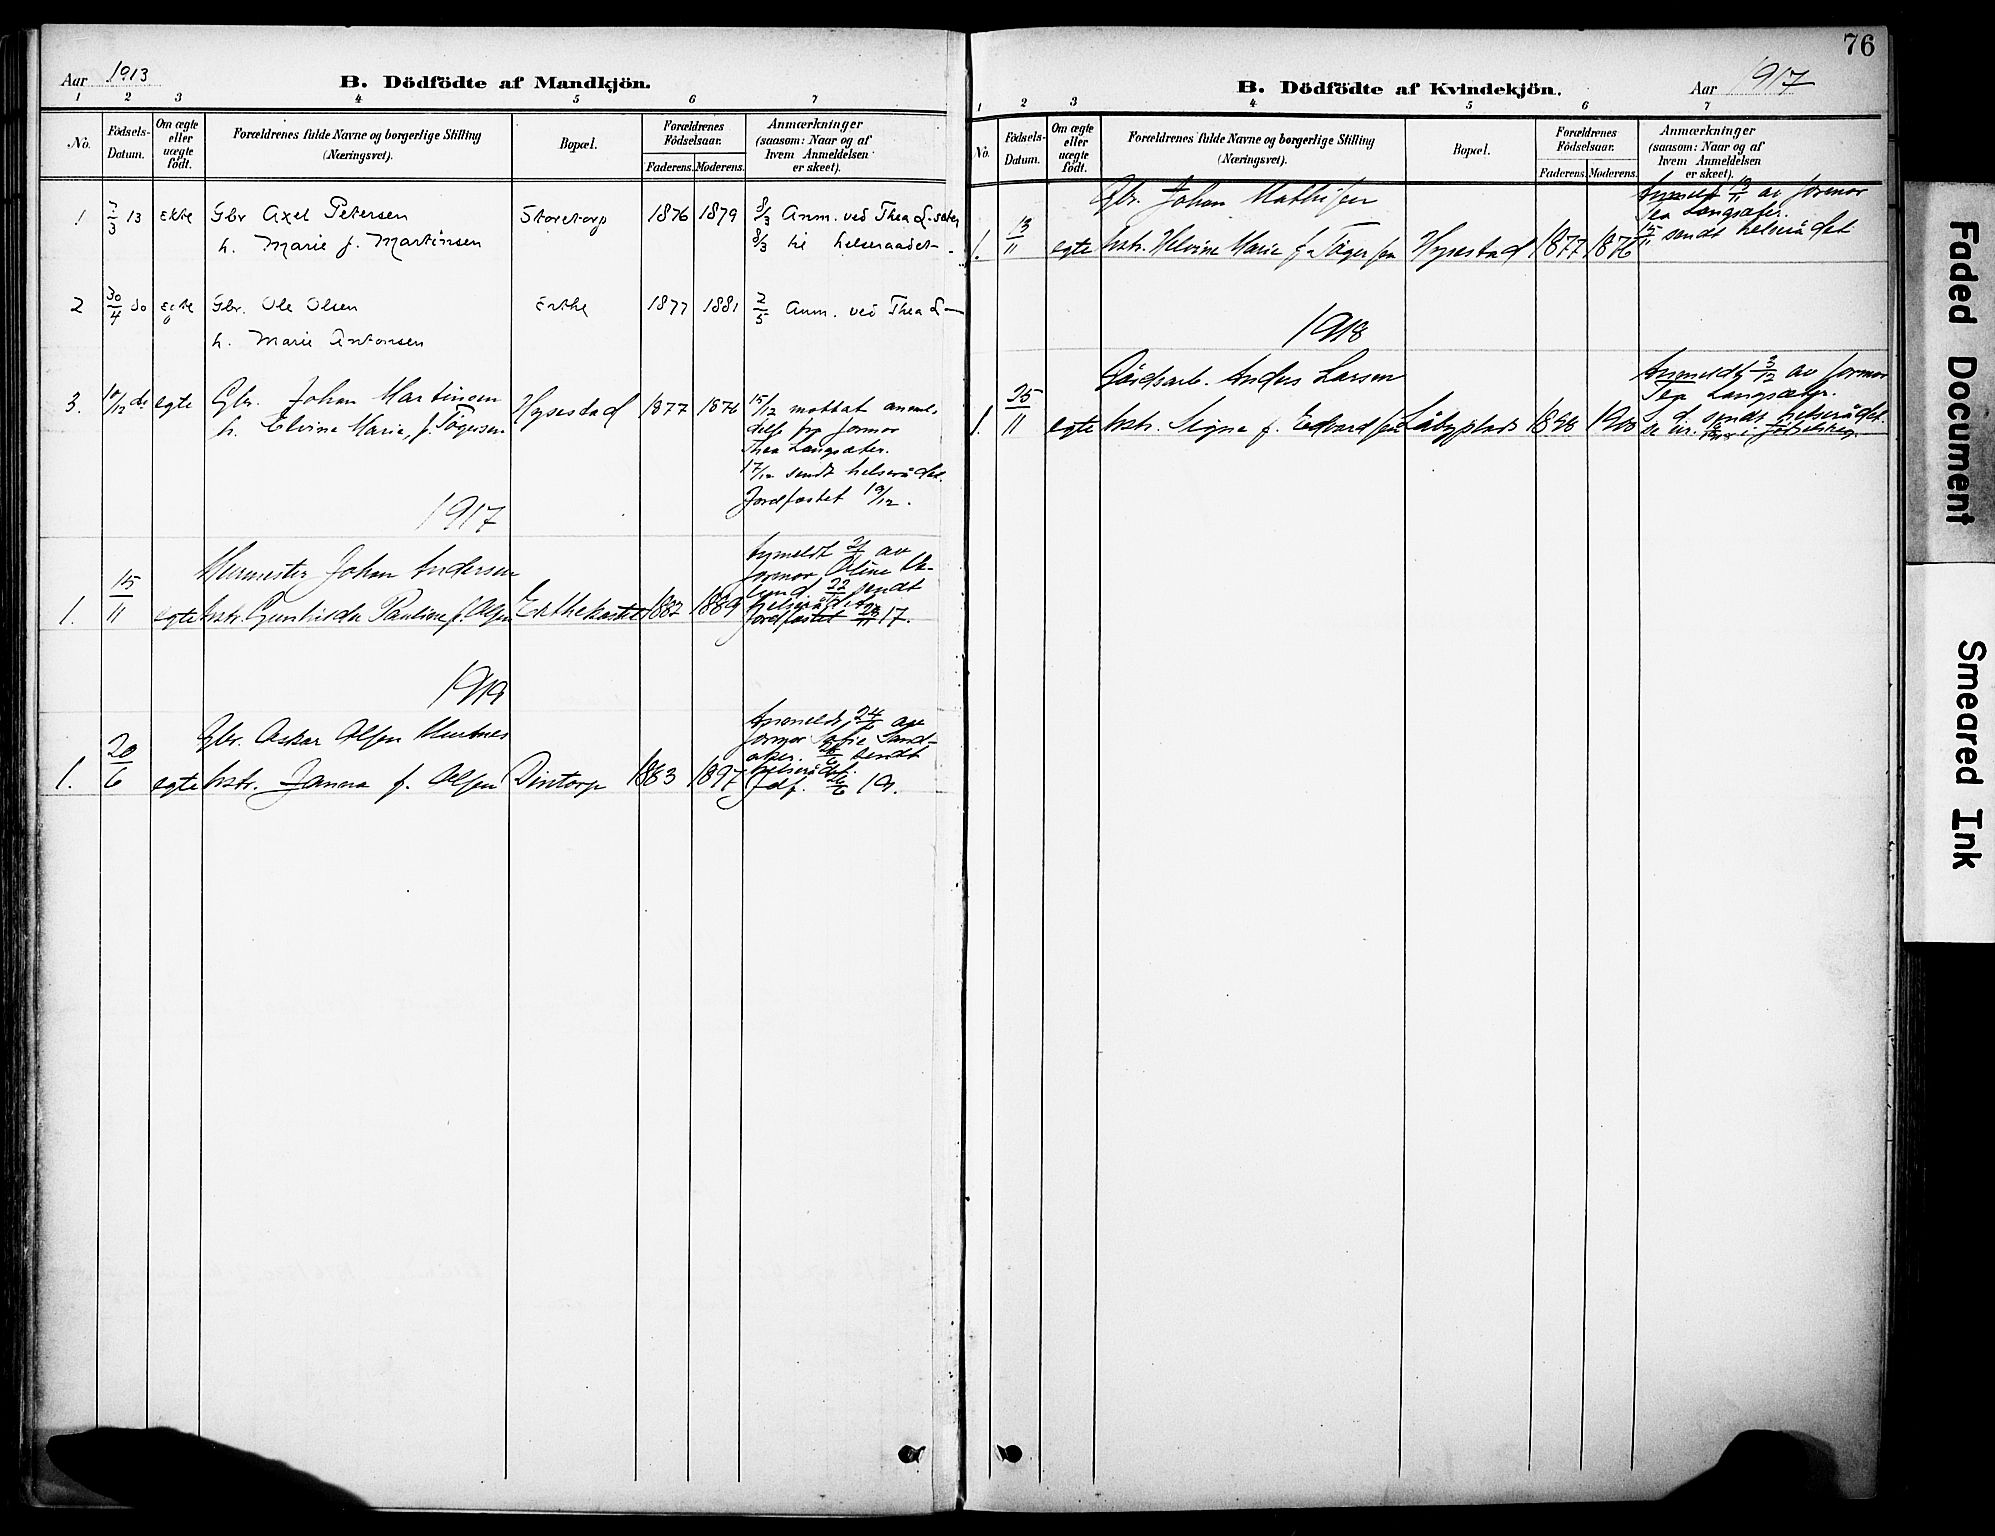 Aar 1913
B. Dödfödte af Mandkjön.
1 2 3 4 5 6 7
No.
Födsels-Datum.
Om ægte eller uægte födt.
Forældrenes fulde Navne og borgerlige Stilling (Næringsvei).
Bopæl.
Forældrenes Födselsaar.
Faderens. Moderens.
Anmærkninger (saasom: Naar og af hvem Anmeldelsen er skeet).
1 7/3 13 ekte Gbr Axel Petersen Storetorp 1876 1879 8/3 Anm. ved Thea L.sæter
h. Marie f. Martinsen 8/3 til helseraadet
2 30/4 do ekte Gbr. Ole Olsen Erthe 1877 1881 2/5 Anm. ved Thea L
h. Marie Antonsen
3. 10/12 do egte Gbr. Johan Martinsen Hysestad 1877 1876 15/12 mottat anmel-
h. Elvine Marie, f. Tögersen delse fra jormor
Thea Langsæter.
17/12 sendt helserådet.
Jordfæstet 19/12.
1917
Murmester Johan Andersen
1. 15/11 egte hstr. Gunhilda Pauline f. Olsen 1882 1889
jormor Oline
22/11 sendt
helserådet
Jordfæstet 17.
1919
Gbr. Oskar Olsen
1. 20/6 egte hstr. Janna f. Olsen Dintorp 1883 1897
Anmeldt 24/6 av
jormor Sofie Sand-
aker. sendt
helserådet.
Jdf. 19.
76
B. Dödfödte af Kvindekjön.
Aar 1917
1 2 3 4 5 6 7
No.
Födsels-Datum.
Om ægte eller uægte födt.
Forældrenes fulde Navne og borgerlige Stilling (Næringsvei).
Bopæl.
Forældrenes Födselsaar.
Faderens. Moderens.
Anmærkninger (saasom: Naar og af hvem Anmeldelsen er skeet).
Gbr. Johan Mathisen
1. 13/11 egte hstr. Helvine Marie f. Tögersen Hysestad 1877 1876
Anmeldt av jormor
Tea Langsæter.
15/11 sendt helserådet
1918
Gårdsarb. Anders Larsen
1. 25/11 egte hstr. Signe f. Edvardsen Låbyplads 1898 1900
Anmeldt 3/12 av jormor
Tea Langsæter.
S. d. sendt helserådet.
Faded Document
Smeared Ink